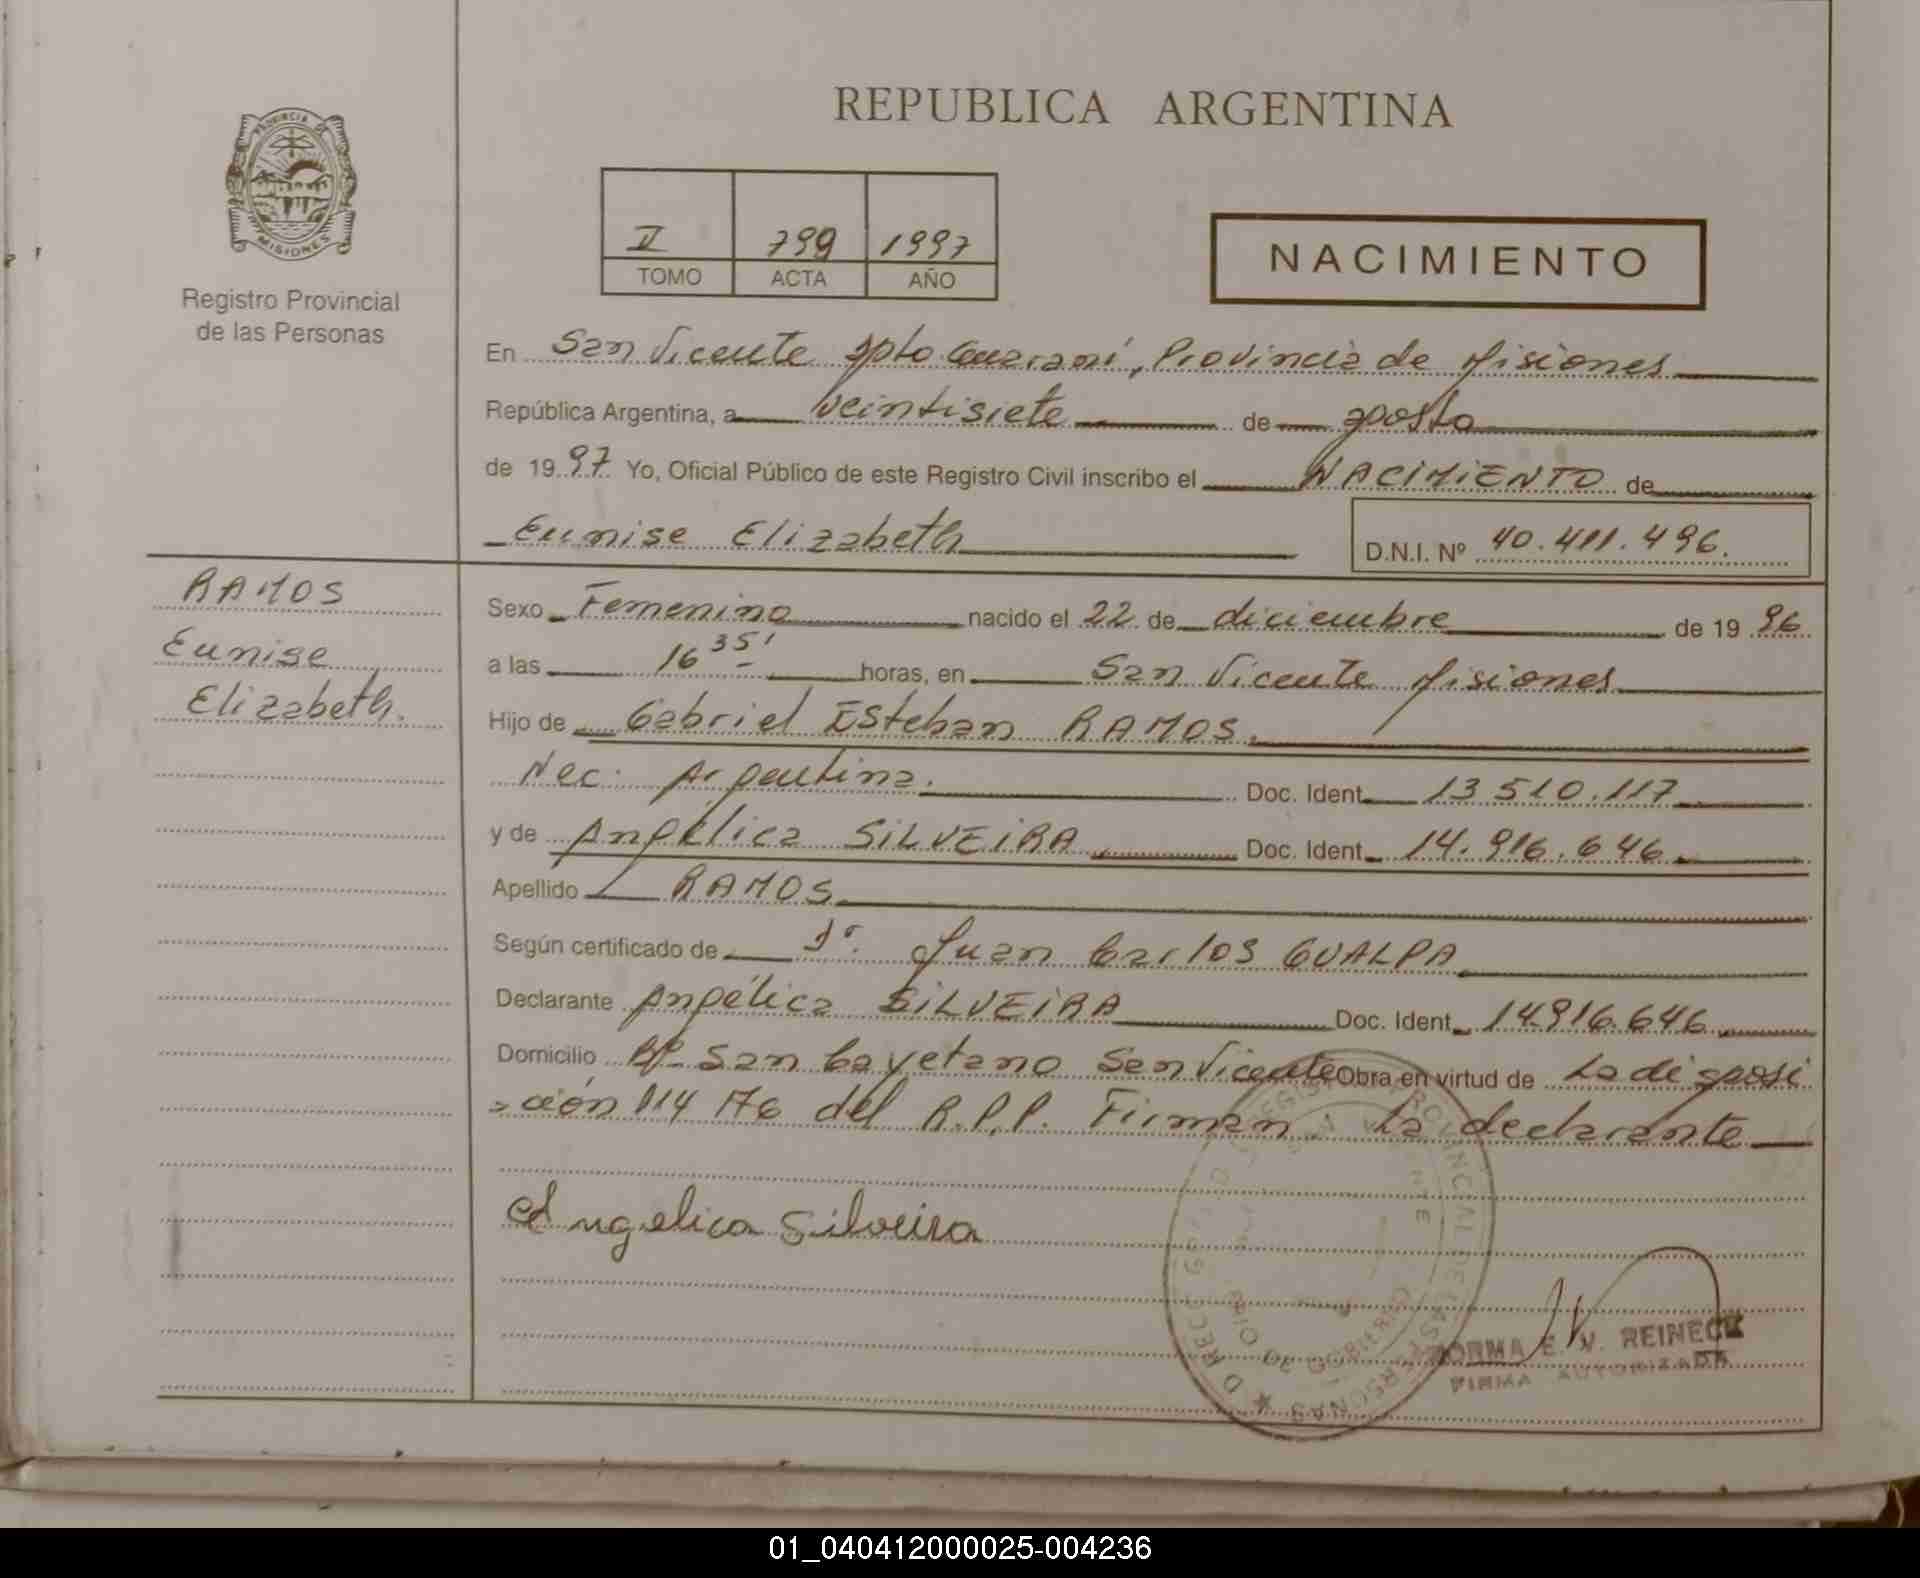 PROVINCIA DE
MISIONES
Registro Provincial
de las Personas
REPUBLICA ARGENTINA
II 799 1997
TOMO ACTA AÑO
NACIMIENTO
En San Vicente Dpto Guaraní, Provincia de Misiones
República Argentina, a veintisiete de agosto
de 1997 Yo, Oficial Público de este Registro Civil inscribo el NACIMIENTO de
Eunise Elizabeth
D.N.I. Nº 40.411.496.
RAMOS
Eunise
Elizabeth.
Sexo Femenino nacido el 22 de diciembre de 1996
a las 16 35' horas, en San Vicente Misiones
Hijo de Gabriel Esteban RAMOS.
Nac. Argentina. Doc. Ident. 13 510.117
y de Angélica SILVEIRA, Doc. Ident. 14.916.646
Apellido RAMOS
Según certificado de Dr. Juan Carlos GUALPA
Declarante Angélica SILVEIRA Doc. Ident. 14916.646
Domicilio Bº San Cayetano San Vicente Obra en virtud de La disposi
=ción 114 76 del R.P.P. Firman La declarante
Angelica Silveira
NORMA E. W. REINECK
FIRMA AUTORIZADA
01_040412000025-004236